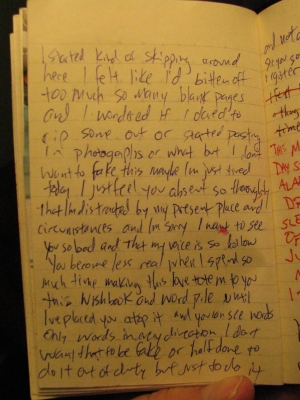 I started kind of skipping around
here I felt like I'd bitten off
too much so many blank pages
and I wondered if I dared to
rip some out or started pasting
in photographs or what but I don't
want to fake this maybe I'm just tired
today I just feel you absent so thoroughly
that I'm distracted by my present place and
circumstances and I'm sorry I want to see
you so bad and that my voice is so hollow
You become less real when I spend so
much time making this love totem to you
this wishbook and word pile until
I've placed you atop it and you can see words
only words in every direction I don't
want that to be fake or half done to
do it out of duty but just to do it
and not